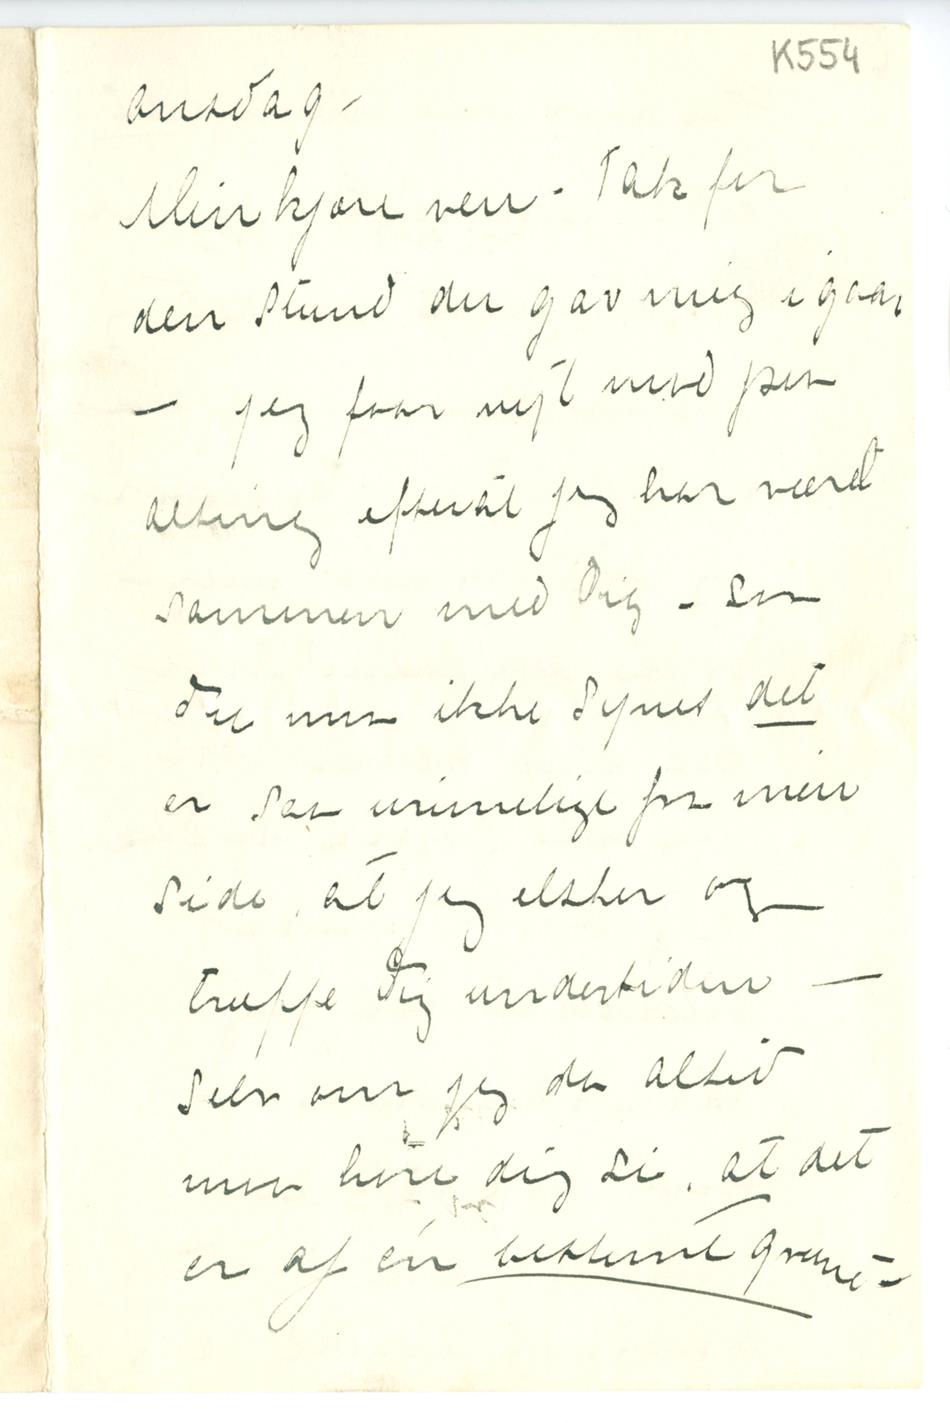 K554
onsdag –
Min kjære ven – Tak for
den Stund du gav mig igaar
– jeg faar nyt mod paa
alting efterat jeg har været
sammen med Dig – saa
du maa ikke Synes det
er saa urimelige fra min
side, at jeg elsker og
træffe Dig undertiden –
Selv om jeg da altid
maa høre dig si, at det
er af én bestemt grund –